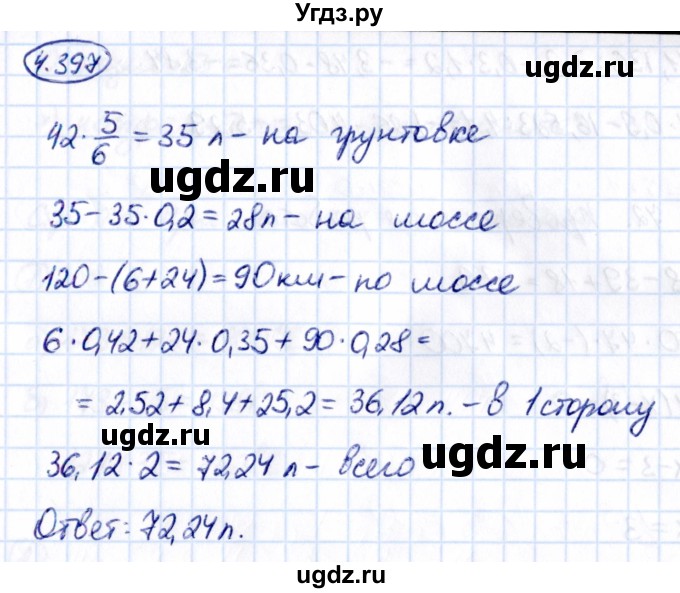 Угдз.ру
4.397
42 · 5/6 = 35 л – на грунтовке
ugdz.ru
35 – 35 · 0,2 = 28л – на шоссе
120 – (6+24) = 90км – по шоссе
6 · 0,42 + 24 · 0,35 + 90 · 0,28 =
= 2,52 + 8,4 + 25,2 = 36,12 л. – в 1 сторону
ugdz.ru
ugdz.ru
36,12 · 2 = 72,24 л – всего
Ответ: 72,24 л.
ugdz.ru